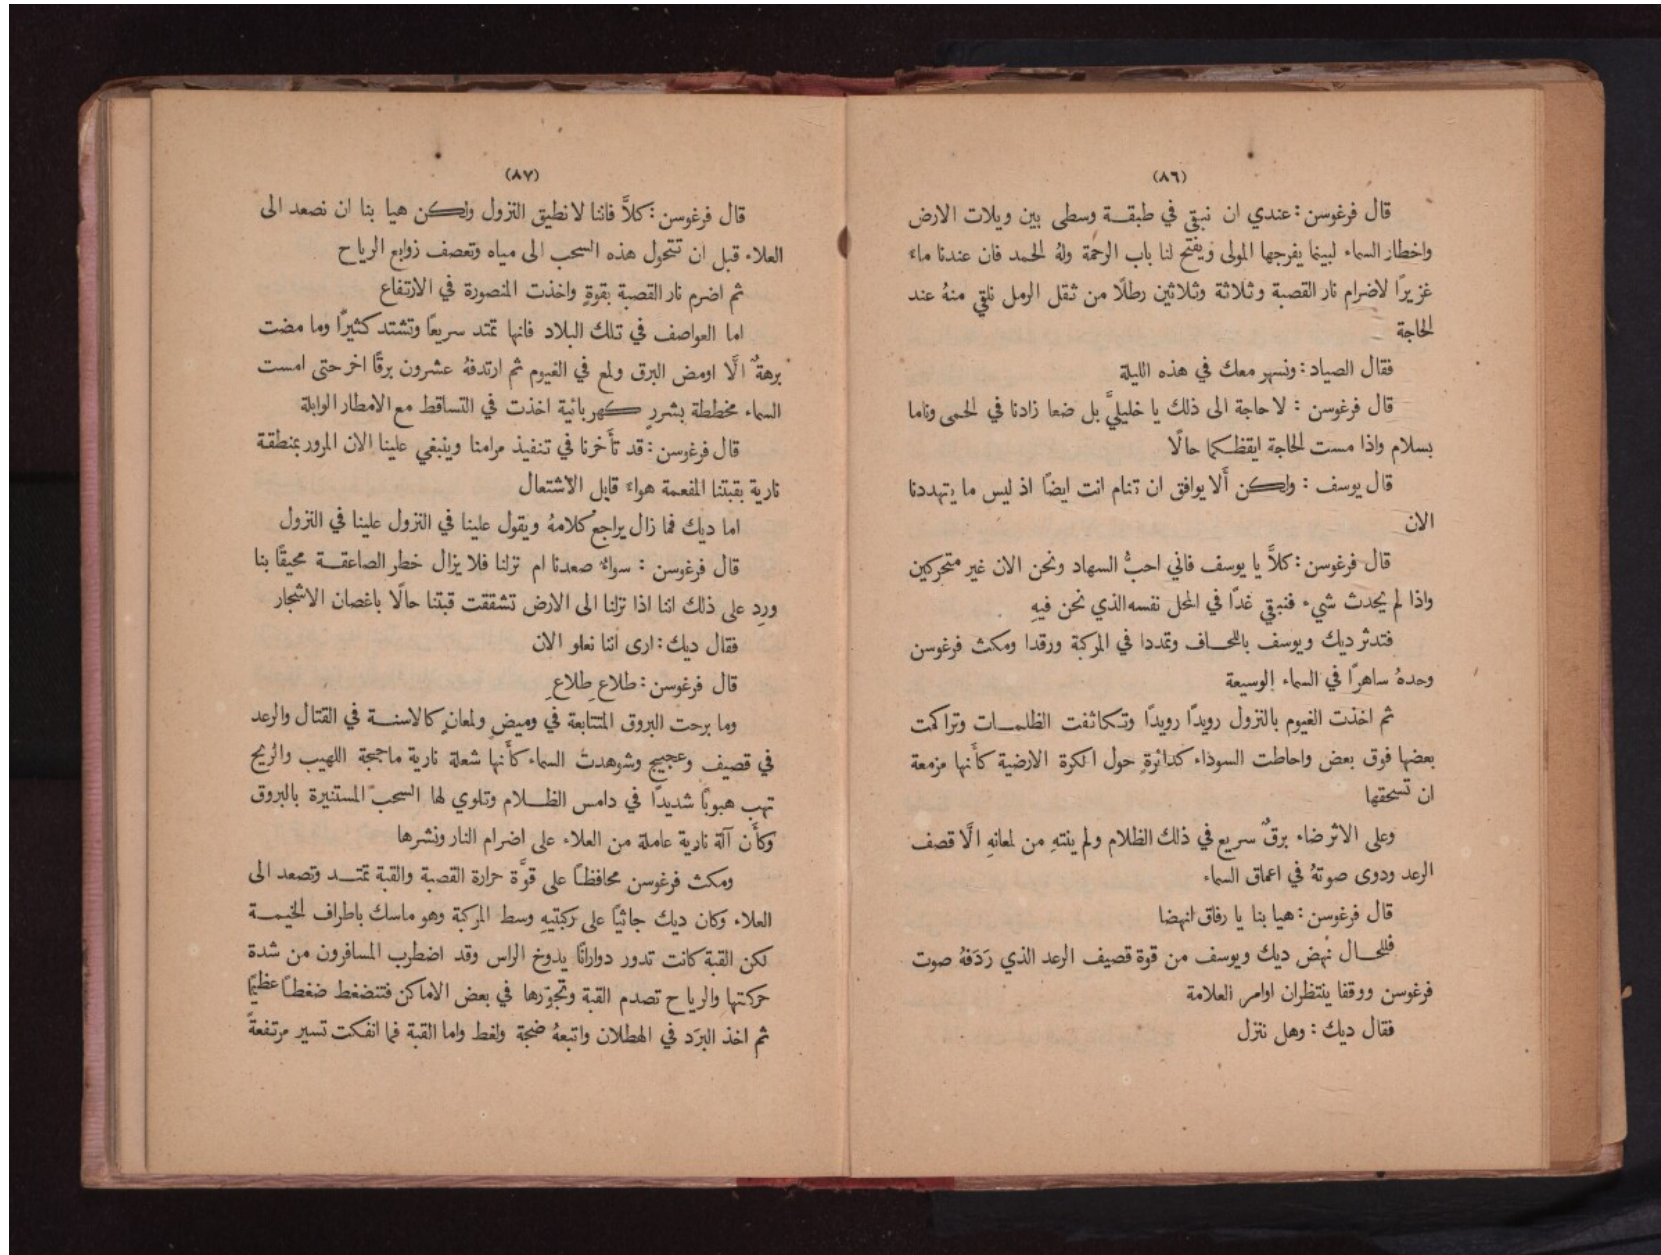 (٨٦)
قال فرغوسن : عندي ان نبقى في طبقة وسطى بين ويلات الارض
واخطار السماء لبينما يفرجها المولى ويفتح لنا باب الرحمة ولهُ الحمد فان عندنا ماءً
غزيرًا لاضرام نار القصبة وثلاثة وثلاثين رطلًا من ثقل الرمل نلقي منهُ عند
الحاجة
فقال الصياد : ونسهر معك في هذه الليلة
قال فرغوسن : لا حاجة الى ذلك يا خليليَّ بل ضعا زادنا في الحمى وناما
بسلام واذا مست الحاجة ايقظكما حالًا
قال يوسف : ولكن أَلا يوافق ان تنام انت ايضًا اذ ليس ما يتهددنا
الان
قال فرغوسن : كلَّا يا يوسف فاني احبُّ السهاد ونحن الان غير متحركين
واذا لم يحدث شيء فنبقى غدًا في المحل نفسه الذي نحن فيهِ
فتدثر ديك ويوسف باللحاف وتمددا في المركبة ورقدا ومكث فرغوسن
وحدهُ ساهرًا في السماء الوسيعة
ثم اخذت الغيوم بالنزول رويدًا رويدًا وتكاثفت الظلمات وتراكمت
بعضها فوق بعض واحاطت السوداء كدائرةٍ حول الكرة الارضية كأَنها مزمعة
ان تسحقها
وعلى الاثر ضاء برقٌ سريع في ذلك الظلام ولم ينتهِ من لمعانهِ الَّا قصف
الرعد ودوى صوتهُ في اعماق السماء
قال فرغوسن : هيا بنا يا رفاق انهضا
فللحال نهض ديك ويوسف من قوة قصيف الرعد الذي رَدَفهُ صوت
فرغوسن ووقفا ينتظران اوامر العلامة
فقال ديك : وهل ننزل
(٨٧)
قال فرغوسن : كلَّا فاننا لا نطيق النزول ولكن هيا بنا ان نصعد الى
العلاء قبل ان تتحول هذه السحب الى مياه وتعصف زوابع الرياح
ثم اضرم نار القصبة بقوةٍ واخذت المنصورة في الارتفاع
اما العواصف في تلك البلاد فانها تمتد سريعًا وتشتد كثيرًا وما مضت
برهةٌ الَّا اومض البرق ولمع في الغيوم ثم ارتدفهُ عشرون برقًا اخر حتى امست
السماء مخططة بشررٍ كهربائية اخذت في التساقط مع الامطار الوابلة
قال فرغوسن : قد تأَخرنا في تنفيذ مرامنا وينبغي علينا الان المرور بمنطقة
نارية بقبتنا المفعمة هواءً قابل الاشتعال
اما ديك فما زال يراجع كلامهُ ويقول علينا في النزول علينا في النزول
قال فرغوسن : سواءٌ صعدنا ام نزلنا فلا يزال خطر الصاعقة محيقًا بنا
وردِ على ذلك اننا اذا نزلنا الى الارض تشققت قبتنا حالًا باغصان الاشجار
فقال ديك : ارى اننا نعلو الان
قال فرغوسن : طلاعِ طلاعِ
وما برحت البروق المتتابعة في وميضٍ ولمعانٍ كالاسنة في القتال والرعد
في قصيف وعجيجٍ وشوهدت السماء كأَنها شعلة نارية ماججة اللهيب والريح
تهب هبوبًا شديدًا في دامس الظلام وتلوي لها السحب المستنيرة بالبروق
وكأَن آلة نارية عاملة من العلاء على اضرام النار ونشرها
ومكث فرغوسن محافظًا على قوَّة حرارة القصبة والقبة تمتد وتصعد الى
العلاء وكان ديك جاثيًا على ركبتيهِ وسط المركبة وهو ماسك باطراف الخيمة
لكن القبة كانت تدور دوارانًا يدوخ الراس وقد اضطرب المسافرون من شدة
حركتها والرياح تصدم القبة وتجوّرها في بعض الاماكن فتنضغط ضغطًا عظيمًا
ثم اخذ البَرَد في الهطلان واتبعهُ ضجة ولغط واما القبة فما انفكت تسير مرتفعةً